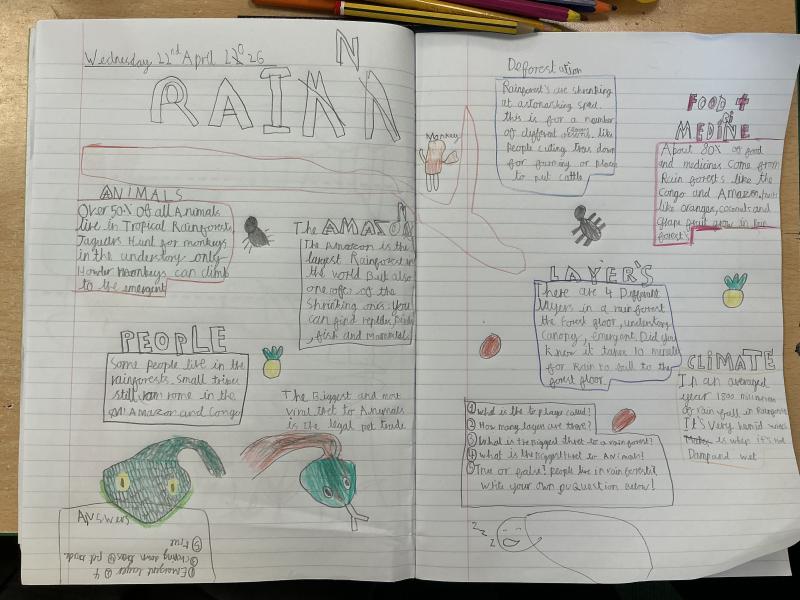 Wednesday 22nd April 2026
N
RAINN
ANIMALS
Over 50% off all Animals
live in Tropical Rainforests,
Jaguars Hunt for monkeys
in the understory only
Howler monkeys can climb
to the emergent
The AMAZON
The Amazon is the
largest Rainforest in
the world But also
one offer of the
Shrinking ones. You
can find reptiles, Birds
, fish and mammals
PEOPLE
Some people live in the
rainforests. Small tribes
still rome in the
Amazon and Congo
The Biggest and most
viral thet to Animals
is the legal pet trade
Answers
①Emergent layer ②4
③choping down trees ④ pet trade
⑤true
Defforestation
Rainforest's are shrinking
at astonashing sped.
this is for a neumber
of different reasons. like
people cuting trees down
for farming or places
to put cattle.
Monkey
FOOD +
MEDINE
ci
About 80% of food
and medicines come from
Rain forests like the
Congo and Amazon. fruits
like oranges, coconuts and
grape fruit grow in rain
forests
LAYER'S
There are 4 Different
layers in a rain forest
the forest floor, understory
Canopy, emergent. Did you
know it takes 10 minutes
for Rain to fall to the
forest floor.
CLIMATE
In an averaged
year 1800 millimeters
of rain fall in Rainforests
It's Very humid
is when it's hot
Damp and wet
①What is the top layer called?
②How many layers are there?
③What is the biggest thret to a rainforest?
④What is the biggest thret to Animals?
⑤True or false? people live in rainforests
Write your own Question below!
z z z